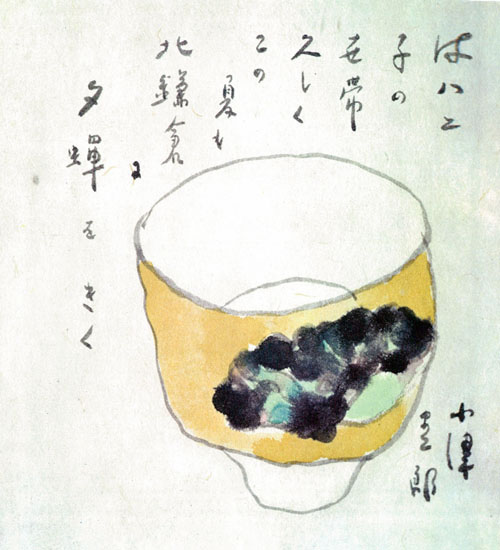 はハと
子の
世帯
久しく
この
夏も
北鎌倉に
夕蟬をきく
小津
安二郎